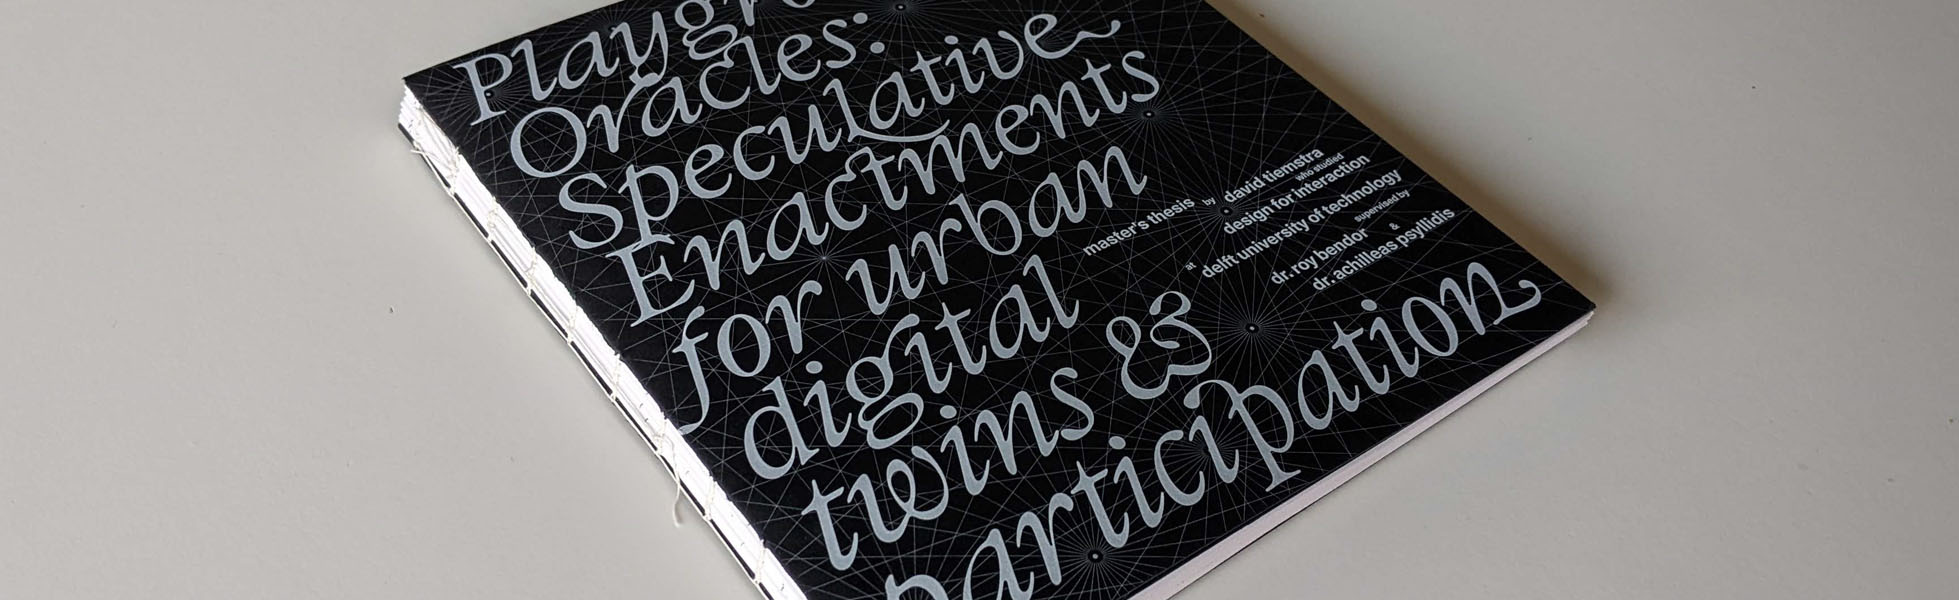 Oracles:
Speculative
Enactments
for urban
digital
twins &
participation
master's thesis by david tiemstra
who studied
design for interaction
at delft university of technology
supervised by
dr. roy bendor &
dr. achilleas psyllidis